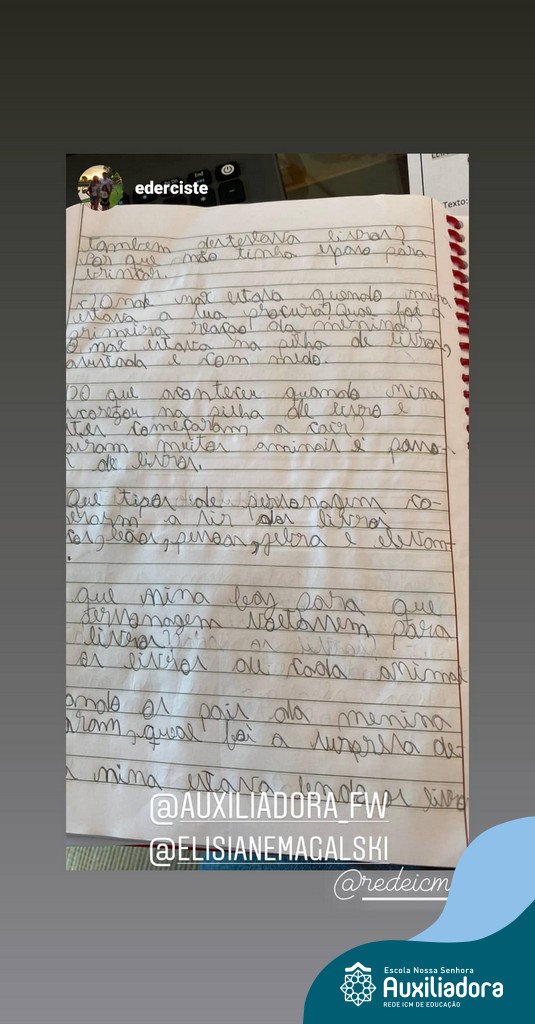 ederciste
Texto:
também destestava livros?
Por que não tinha espaso para
brincar.
Onde max estava quando mina
estava a sua procura? Qual foi a
primeira reação da menina?
O max estava na pilha de livros,
asustada e com medo.
O que aconteceu quando Mina
na pilha de livro e
começaram a cair?
airam muitos animais e
de livros.
Que tipos de personagem co-
a sir dos livros
leão, pessoas, zebra e
que mina fas para que
personagem voltassem para
livros?
os livros de cada animal
ando os pais da menina
aram, qual foi a surpresa de-
mina estava lendo os livro
@AUXILIADORA_FW
@ELISIANEMAGALSKI
@redeicm
Escola Nossa Senhora
Auxiliadora
REDE ICM DE EDUCAÇÃO